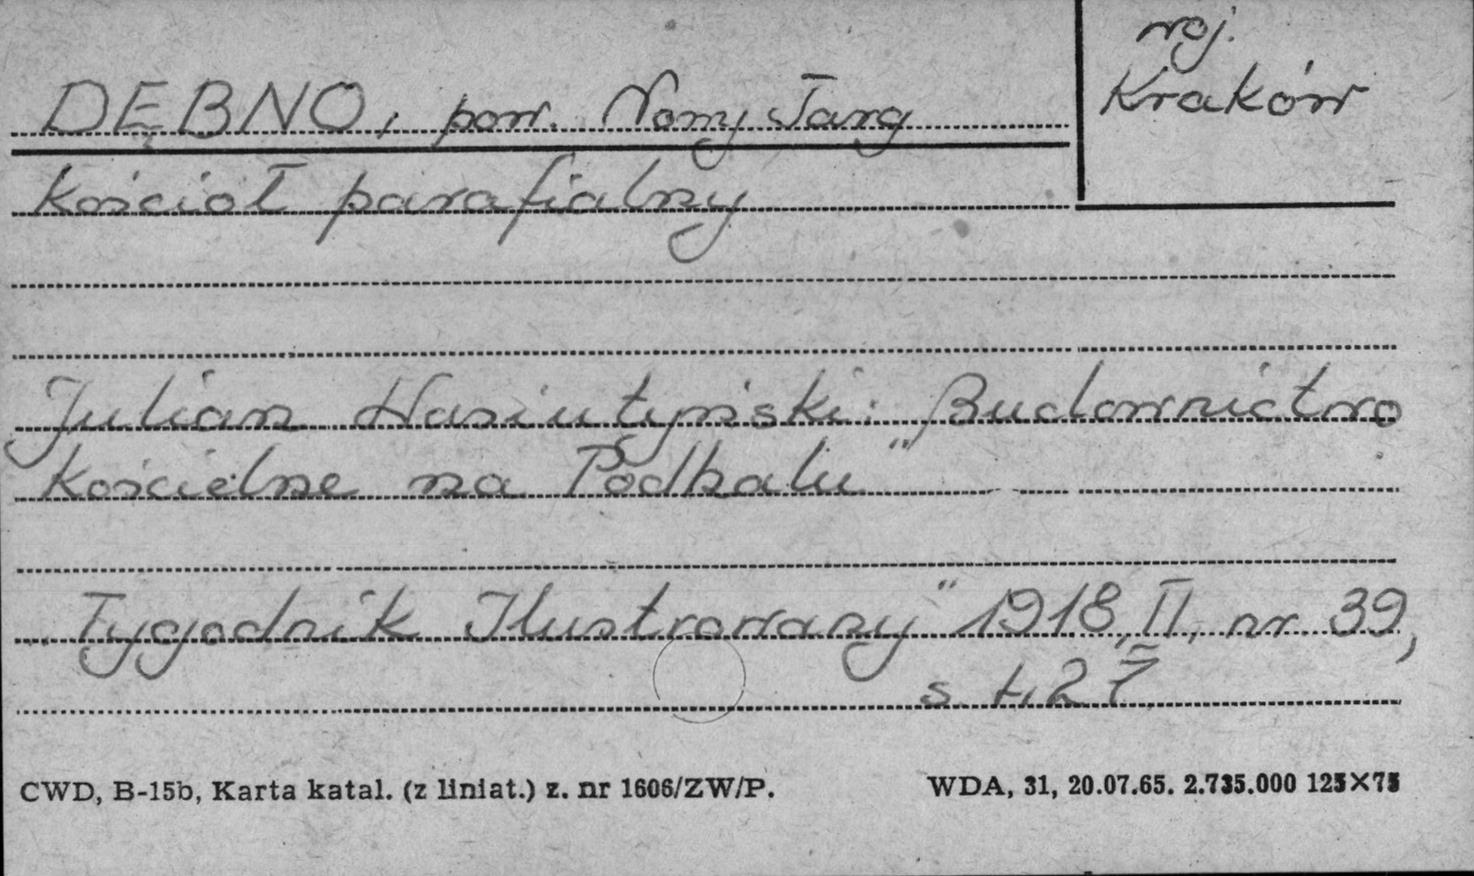 DĘBNO, pow. Nowy Targ
woj.
Kraków
Kościół parafialny
Julian Hasiutyński: „Budownictwo
Kościelne na Podhalu"
„Tygodnik Ilustrowany" 1918, II, nr. 39,
s.
CWD, B-15b, Karta katal. (z liniat.) z. nr 1606/ZW/P.
WDA, 31, 20.07.65. 2.735.000 125×75